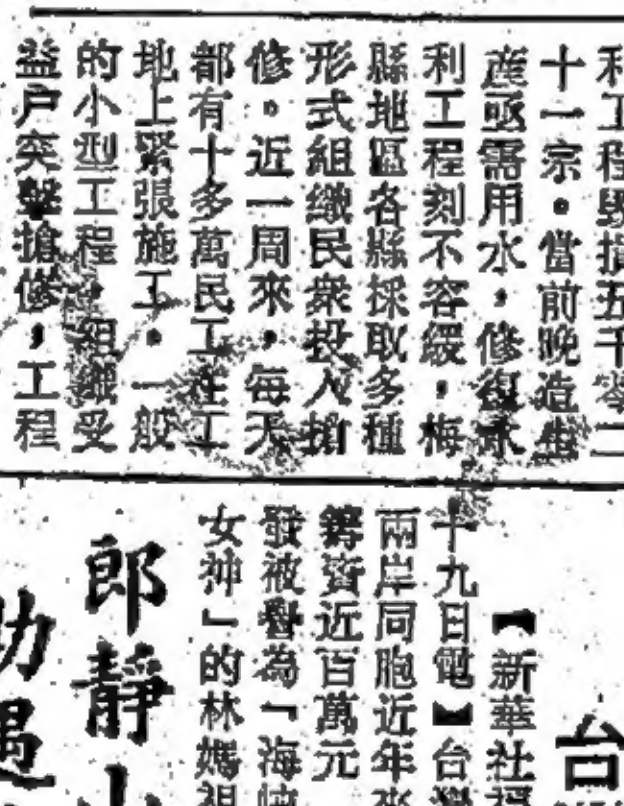 利工程毀損五千零二
十一宗。當前晚造生
產亟需用水，修復水
利工程刻不容緩，梅
縣地區各縣採取多種
形式組織民衆投入搶
修。近一周來，每天
都有十多萬民工在工
地上緊張施工。一般
的小型工程，組織受
益户突擊搶修，工程
台
【新華社福
十九日電】台灣
兩岸同胞近年來
籌資近百萬元
發被譽為「海峽
女神」的林媽祖
郎靜山
助遇